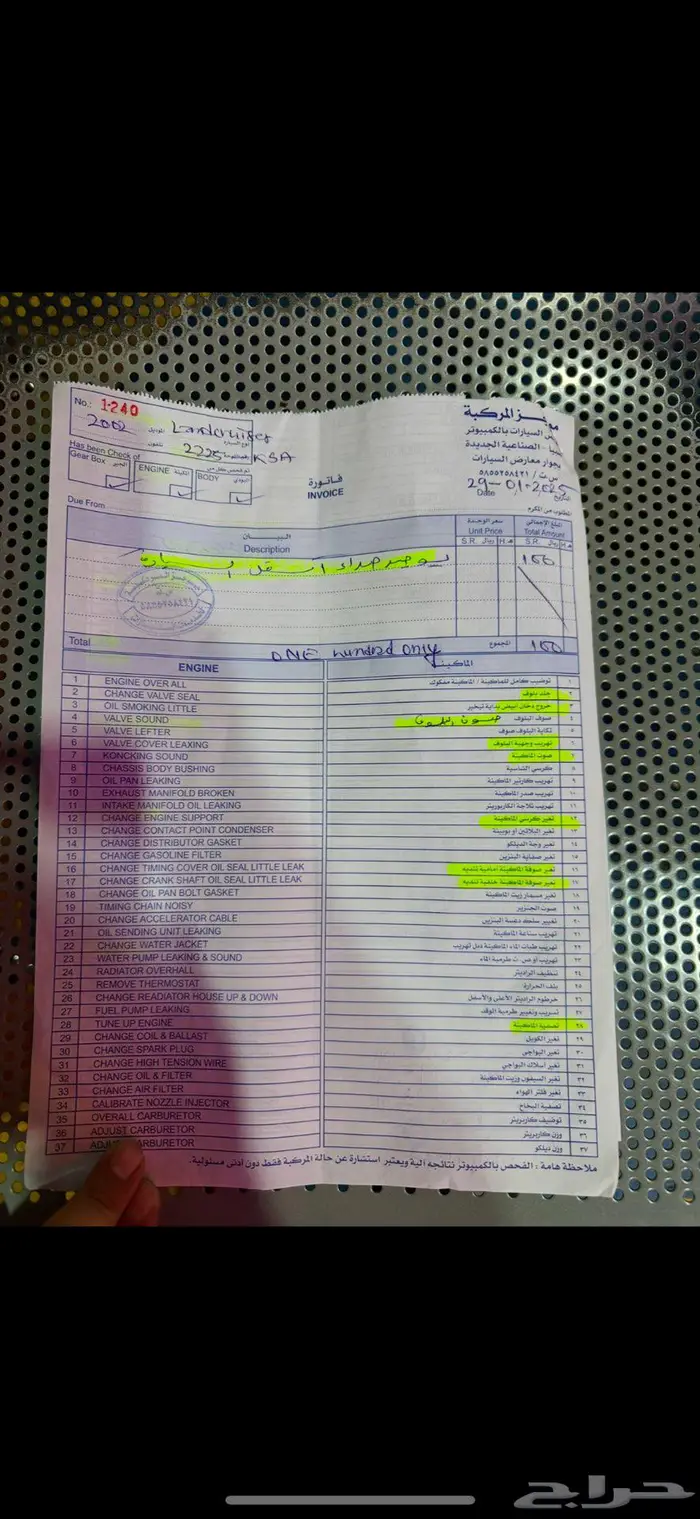 No.: 1240
مركز المركبة
2002 موديل Landcruiser نوع السيارة
فحص السيارات بالكمبيوتر
تلفون 2225 رقم اللوحة KSA
الصناعية الجديدة
Has been Check of تم فحص كل من
بجوار معارض السيارات
Gear Box الجير
ENGINE الماكينة
BODY البودي
ت / ٠٥٨٥٥٢٥٨٤٢١
فاتورة
INVOICE
29-01-2025
Date التاريخ
Due From المطلوب من المكرم
البيان
Description
سعر الوحدة
Unit Price
المبلغ الإجمالي
Total Amount
S.R. ريال H. هـ
S.R. ريال H. هـ
يوجد صداء اسفل السيارة
100
Total ONE hundred only المجموع 100
ENGINE الماكينة
1 ENGINE OVER ALL توضيب كامل للماكينة / الماكينة مفكوك ١
2 CHANGE VALVE SEAL جلد بلوف ٢
3 OIL SMOKING LITTLE خروج دخان ابيض بداية تبخير ٣
4 VALVE SOUND صوت البلوف صوف البلوف ٤
5 VALVE LEFTER تكاية البلوف صوف ٥
6 VALVE COVER LEAXING تهريب وجهية البلوف ٦
7 KONCKING SOUND صوت الماكينة ٧
8 CHASSIS BODY BUSHING كرسي الشاسية ٨
9 OIL PAN LEAKING تهريب كارتير الماكينة ٩
10 EXHAUST MANIFOLD BROKEN تهريب صدر الماكينة ١٠
11 INTAKE MANIFOLD OIL LEAKING تهريب ثلاجة الكاربوريتر ١١
12 CHANGE ENGINE SUPPORT تغير كرسي الماكينة ١٢
13 CHANGE CONTACT POINT CONDENSER تغير البلاتين او بوبينة ١٣
14 CHANGE DISTRIBUTOR GASKET تغير وجة الديلكو ١٤
15 CHANGE GASOLINE FILTER تغير صفاية البنزين ١٥
16 CHANGE TIMING COVER OIL SEAL LITTLE LEAK تغير صوفة الماكينة امامية تنديه ١٦
17 CHANGE CRANK SHAFT OIL SEAL LITTLE LEAK تغير صوفة الماكينة خلفية تنديه ١٧
18 CHANGE OIL PAN BOLT GASKET تغير مسمار زيت الماكينة ١٨
19 TIMING CHAIN NOISY صوت الجنزير ١٩
20 CHANGE ACCELERATOR CABLE تغيير سلك دعسة البنزين ٢٠
21 OIL SENDING UNIT LEAKING تهريب ساعة الماكينة ٢١
22 CHANGE WATER JACKET تهريب طبات الماء الماكينة دبل تهريب ٢٢
23 WATER PUMP LEAKING & SOUND تهريب او ص.ت طرمبة الماء ٢٣
24 RADIATOR OVERHALL تنظيف الراديتر ٢٤
25 REMOVE THERMOSTAT بلف الحرارة ٢٥
26 CHANGE READIATOR HOUSE UP & DOWN خرطوم الراديتر الأعلى والأسفل ٢٦
27 FUEL PUMP LEAKING تسريب وتغيير طرمبة الوقد ٢٧
28 TUNE UP ENGINE تصفية الماكينة ٢٨
29 CHANGE COIL & BALLAST تغير الكويل ٢٩
30 CHANGE SPARK PLUG تغير البواجي ٣٠
31 CHANGE HIGH TENSION WIRE تغير اسلاك البواجي ٣١
32 CHANGE OIL & FILTER تغير السيفون وزيت الماكينة ٣٢
33 CHANGE AIR FILTER تغير فلتر الهواء ٣٣
34 CALIBRATE NOZZLE INJECTOR تصفية البخاخ ٣٤
35 OVERALL CARBURETOR توضيف كاربريتر ٣٥
36 ADJUST CARBURETOR وزن كاربريتر ٣٦
37 CARBURETOR وزن ديلكو ٣٧
ملاحظة هامة : الفحص بالكمبيوتر نتائجه الية ويعتبر استشارة عن حالة المركبة فقط دون أدنى مسئولية.
حراج